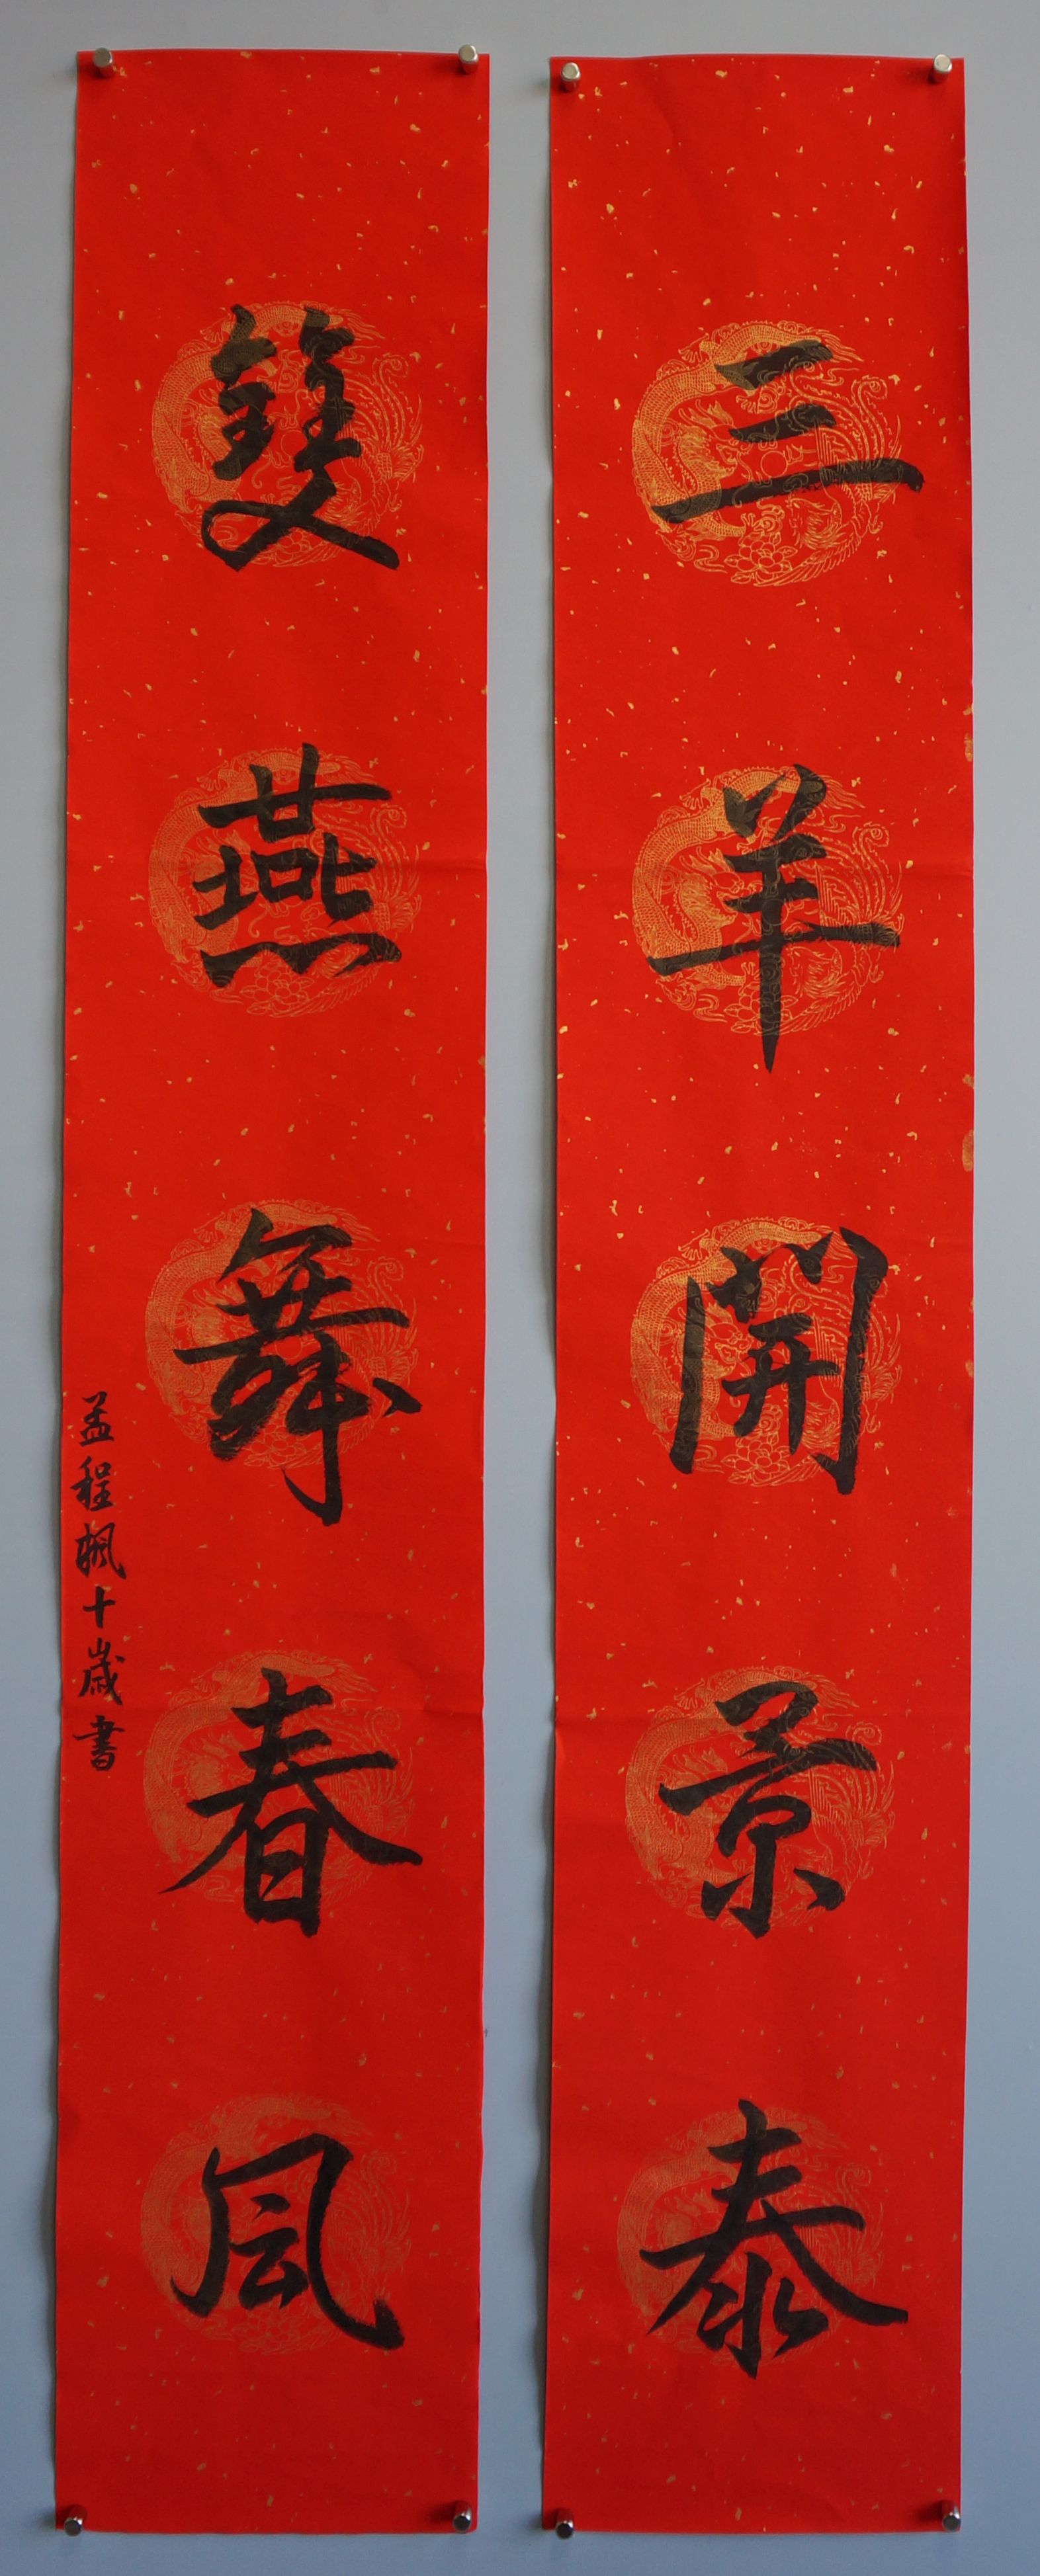 三羊開景泰
雙燕舞春風
孟程楓十歲書